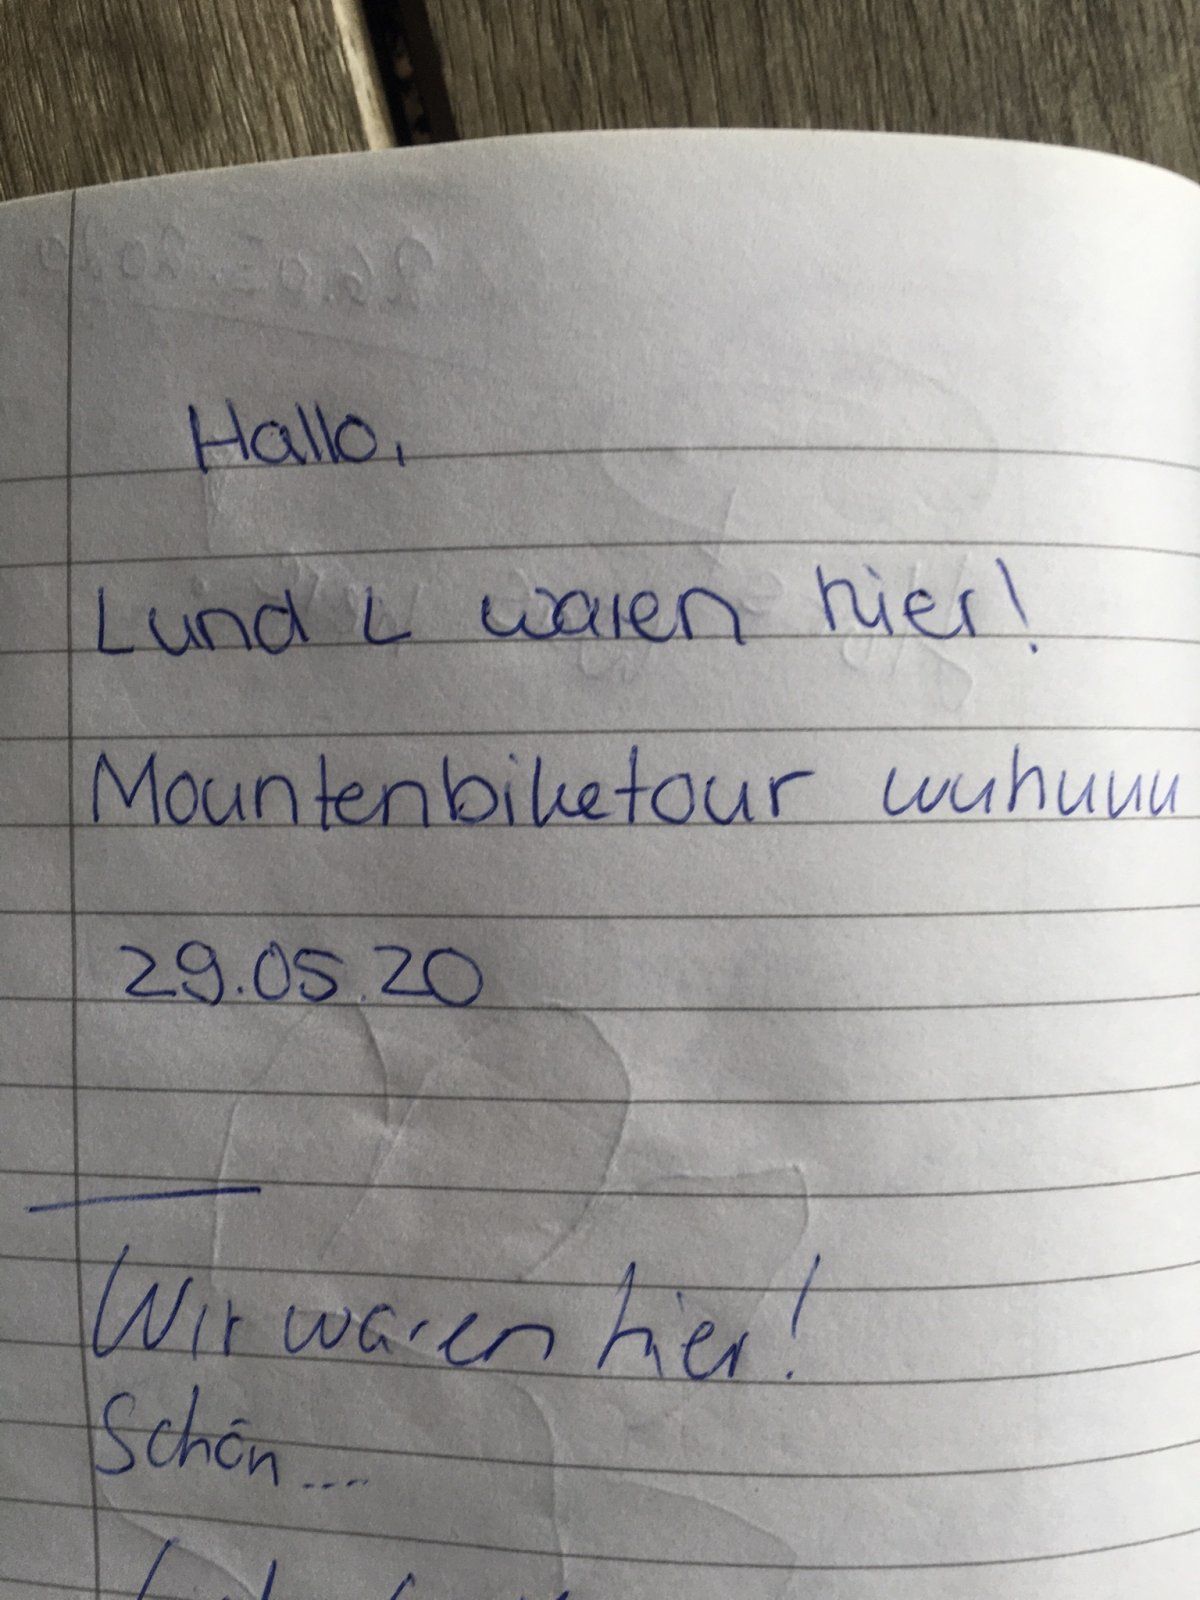 Hallo,
L und L waren hier!
Mountenbiketour wuhuuu
29.05.20
Wir waren hier!
Schön....